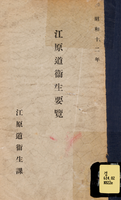 昭和十一年
江原道衛生要覽
江原道衛生課